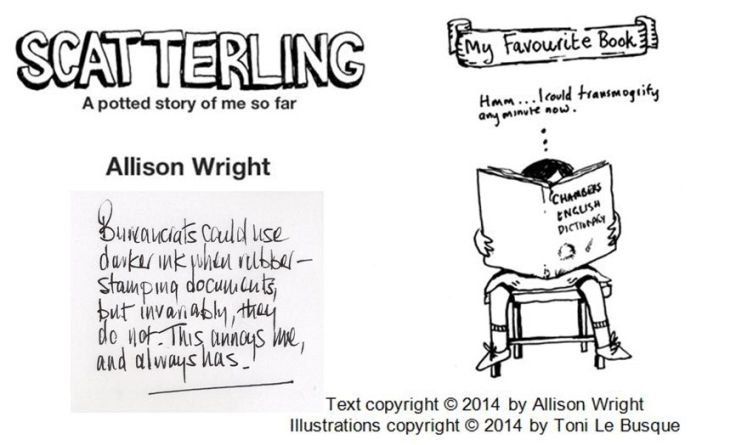 SCATTERLING
A potted story of me so far
Allison Wright
Bureaucrats could use
darker ink when rubber-
stamping documents,
but invariably, they
do not. This annoys me,
and always has.
My Favourite Book
Hmm... I could transmogrify
any minute now.
CHAMBERS
ENGLISH
DICTIONARY
Text copyright © 2014 by Allison Wright
Illustrations copyright © 2014 by Toni Le Busque